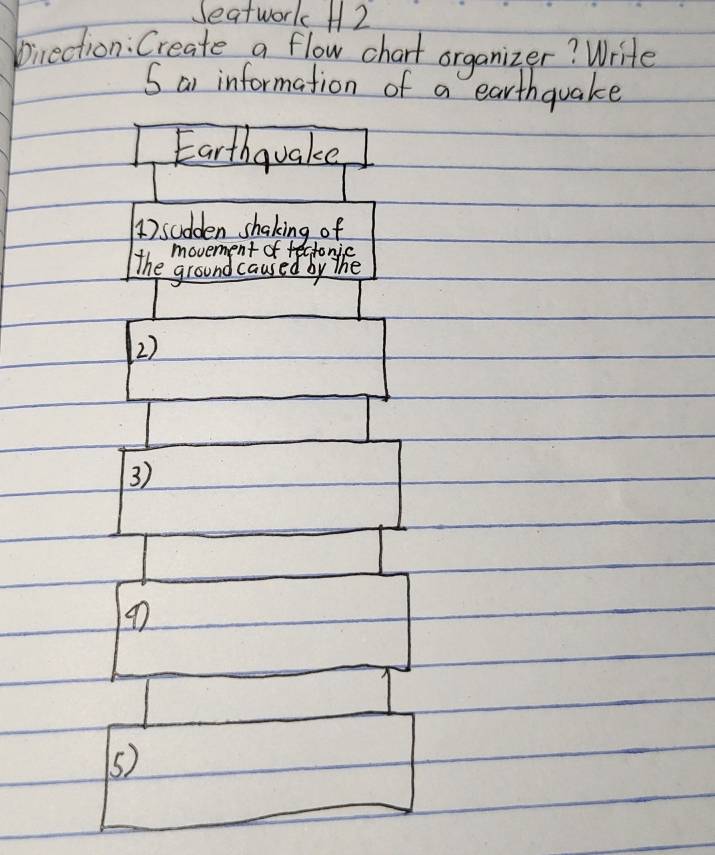 Seatwork #2
Direction: Create a flow chart organizer? Write
5 information of a earthquake
Earthquake
1) sudden shaking of
movement of tectonic
the ground caused by the
2)
3)
4)
5)